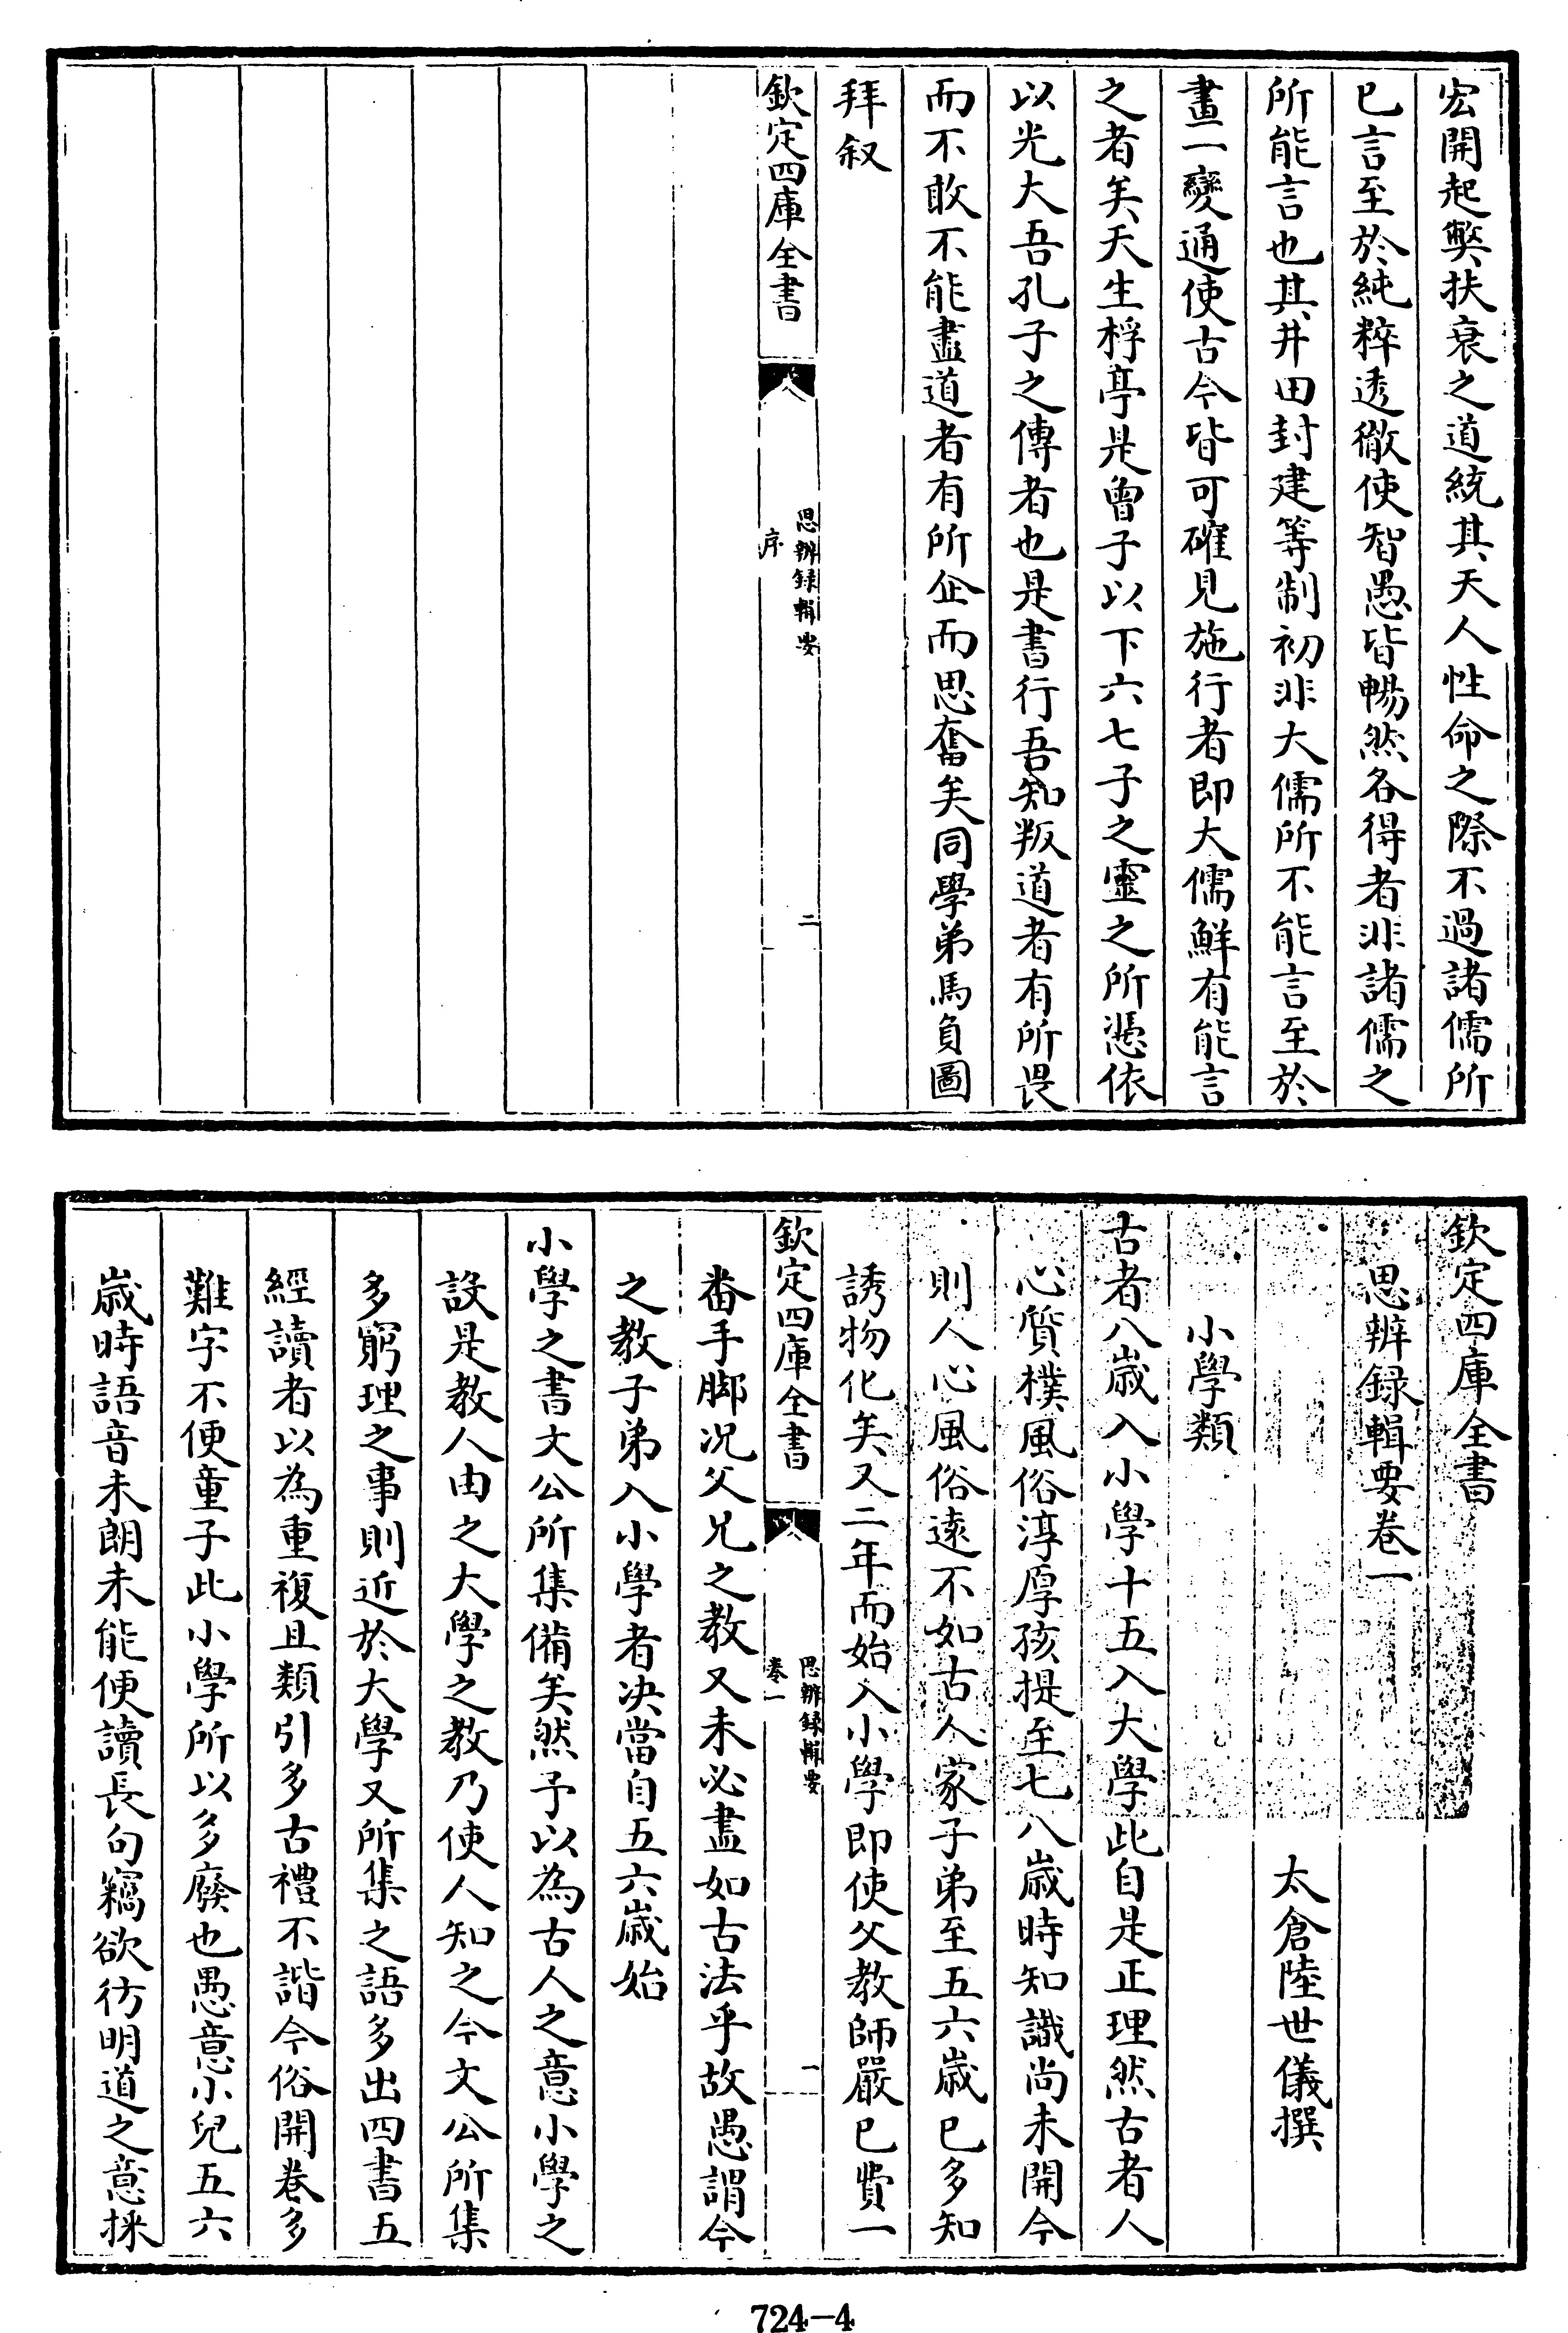 宏開起弊扶衰之道統其天人性命之際不過諸儒所
已言至於純粹透徹使智愚皆暢然各得者非諸儒之
所能言也其井田封建等制初非大儒所不能言至於
畫一變通使古今皆可確見施行者即大儒鮮有能言
之者矣天生桴亭是曾子以下六七子之靈之所憑依
以光大吾孔子之傳者也是書行吾知叛道者有所畏
而不敢不能盡道者有所企而思奮矣同學弟馬負圖
拜叙
欽定四庫全書
思辨録輯要
序
二
欽定四庫全書
思辨録輯要卷一
太倉陸世儀撰
小學類
古者八歳入小學十五入大學此自是正理然古者人
心質樸風俗淳厚孩提至七八歳時知識尚未開今
則人心風俗逺不如古人家子弟至五六歳已多知
誘物化矣又二年而始入小學即使父教師嚴已費一
欽定四庫全書
思辨録輯要
卷一
一
番手脚况父兄之教又未必盡如古法乎故愚謂今
之教子弟入小學者决當自五六歳始
小學之書文公所集備矣然予以為古人之意小學之
設是教人由之大學之教乃使人知之今文公所集
多窮理之事則近於大學又所集之語多出四書五
經讀者以為重複且類引多古禮不諧今俗開卷多
難字不便童子此小學所以多廢也愚意小兒五六
歳時語音未朗未能便讀長句竊欲彷明道之意採
724-4